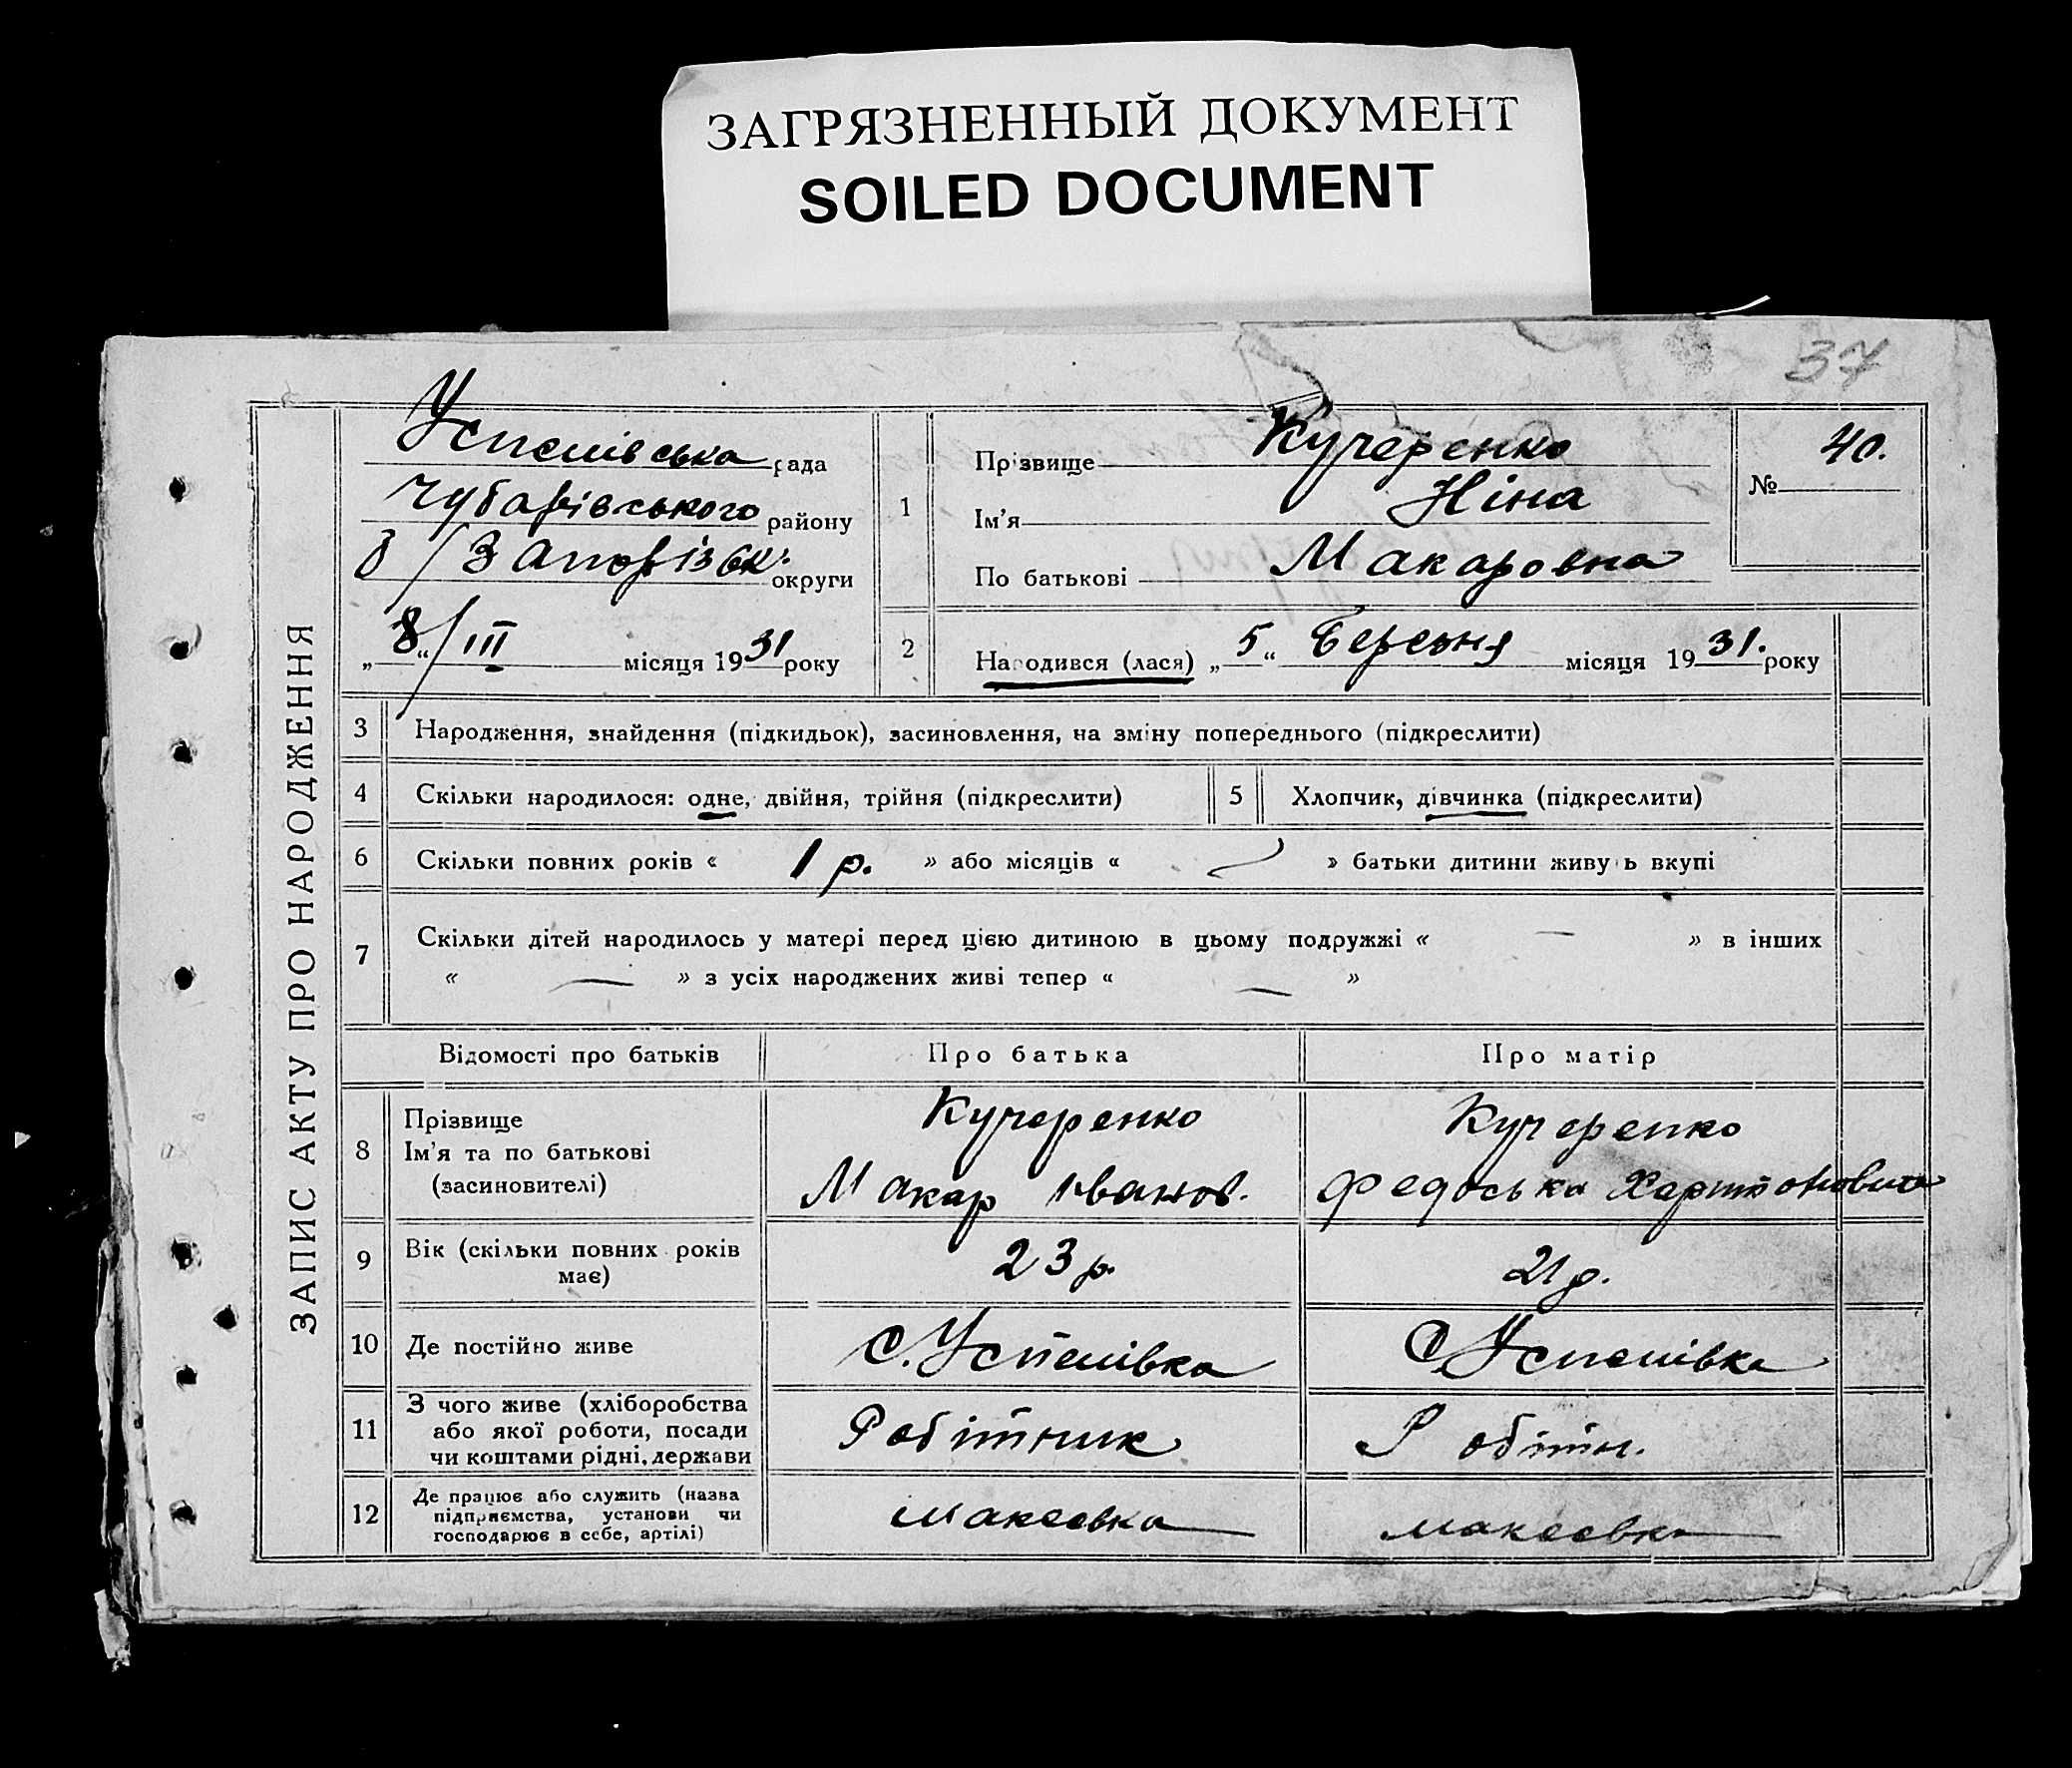 ЗАГРЯЗНЕННЫЙ ДОКУМЕНТ
SOILED DOCUMENT
37
ЗАПИС АКТУ ПРО НАРОДЖЕННЯ
Успенівська рада
Чубарівського району
б/Запорізьк. округи
„8“/III місяця 1931 року
1
Прізвище Кучеренко
Ім'я Ніна
По батькові Макаровна
№ 40.
2
Народився (лася) „5“ Березня місяця 1931. року
3 Народження, знайдення (підкидьок), засиновлення, на зміну попереднього (підкреслити)
4 Скільки народилося: одне, двійня, трійня (підкреслити) 5 Хлопчик, дівчинка (підкреслити)
6 Скільки повних років « 1 р. » або місяців « » батьки дитини живуть вкупі
7 Скільки дітей народилось у матері перед цією дитиною в цьому подружжі « — » в інших
« — » з усіх народжених живі тепер « — »
Відомості про батьків Про батька Про матір
8 Прізвище
Ім'я та по батькові
(засиновителі)
Кучеренко
Макар Іванов.
Кучеренко
Федоська Харитоновна
9 Вік (скільки повних років
має)
23 р.
21 р.
10 Де постійно живе с. Успенівка С Успенівка
11 З чого живе (хліборобства
або якої роботи, посади
чи коштами рідні, держави
Робітник
Робітн.
12 Де працює або служить (назва
підприємства, установи чи
господарює в себе, артілі)
Макеевка
Макеевка